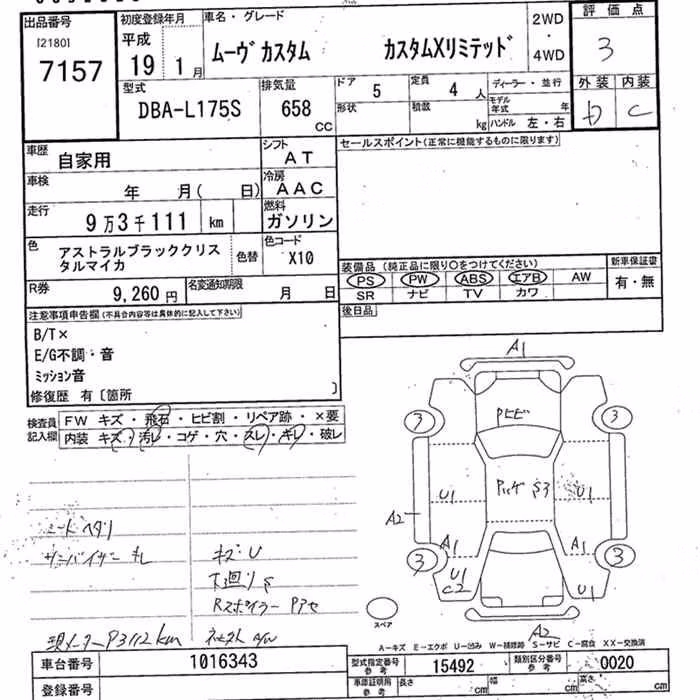 出品番号 初度登録年月 車名・グレード 2WD・4WD 評価点
[21801 平成 ムーヴカスタム カスタムXリミテッド 3
7157 19 1月 外装 内装
型式 排気量 ドア 5 定員 4人 ディーラー・並行 C
DBA-L175S 658 CC 形状 積載 kg モデル年式 年 ハンドル 左・右
車歴 自家用 シフト AT セールスポイント(正常に機能するものに限ります)
車検 年 月( 日) 冷房 AAC
走行 9万3千111 km 燃料 ガソリン
色 アストラルブラッククリスタルマイカ 色替 色コード X10 装備品(純正品に限り○をつけてください) 新車保証書
PS PW ABS エアB AW 有・無
R券 9,260円 名変通知期限 月 日 SR ナビ TV カワ
注意事項申告欄(不具合内容等は具体的に記入して下さい) 後日品
B/T×
E/G不調・音
ミッション音
修復歴 有〔箇所 〕
検査員記入欄 FW キズ・飛石・ヒビ割・リペア跡・×要
内装 キズ・汚レ・コゲ・穴・スレ・キレ・破レ
A1
Pヒビ
3 3
U1 S3 U1
A2
A1 A1
3 3
U1 C2 U1
シートヘタリ
サンバイザーキレ キズ・U
下廻りS
RスポイラーPアセ
現メーター93112km
スペア
A2
A-キズ E-エクボ U-凹み W-補修跡 S-サビ C-腐食 XX-交換済
車台番号 1016343 型式指定番号 参考 15492 類別区分番号 参考 0020
登録番号 車庫証明用 参考 長さ cm 幅 cm 高さ cm